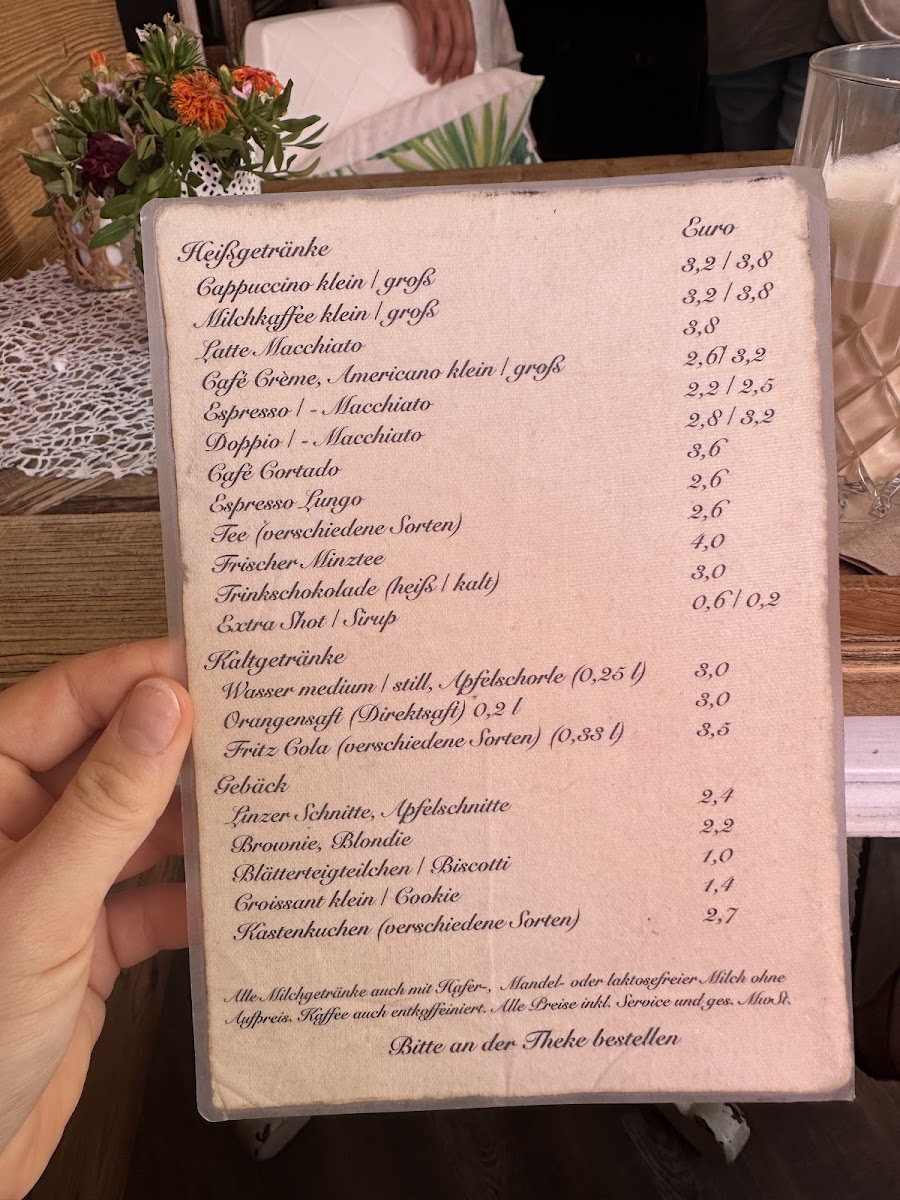 Euro
Heißgetränke
Cappuccino klein / groß 3,2 / 3,8
Milchkaffee klein / groß 3,2 / 3,8
Latte Macchiato 3,8
Café Crème, Americano klein / groß 2,6/ 3,2
Espresso / - Macchiato 2,2 / 2,5
Doppio / - Macchiato 2,8 / 3,2
Café Cortado 3,6
Espresso Lungo 2,6
Tee (verschiedene Sorten) 2,6
Frischer Minztee 4,0
Trinkschokolade (heiß / kalt) 3,0
Extra Shot / Sirup 0,6 / 0,2
Kaltgetränke
Wasser medium / still, Apfelschorle (0,25 l) 3,0
Orangensaft (Direktsaft) 0,2 l 3,0
Fritz Cola (verschiedene Sorten) (0,33 l) 3,5
Gebäck
Linzer Schnitte, Apfelschnitte 2,4
Brownie, Blondie 2,2
Blätterteigteilchen / Biscotti 1,0
Croissant klein / Cookie 1,4
Kastenkuchen (verschiedene Sorten) 2,7
Alle Milchgetränke auch mit Hafer-, Mandel- oder laktosefreier Milch ohne
Aufpreis. Kaffee auch entkoffeiniert. Alle Preise inkl. Service und ges. MwSt.
Bitte an der Theke bestellen